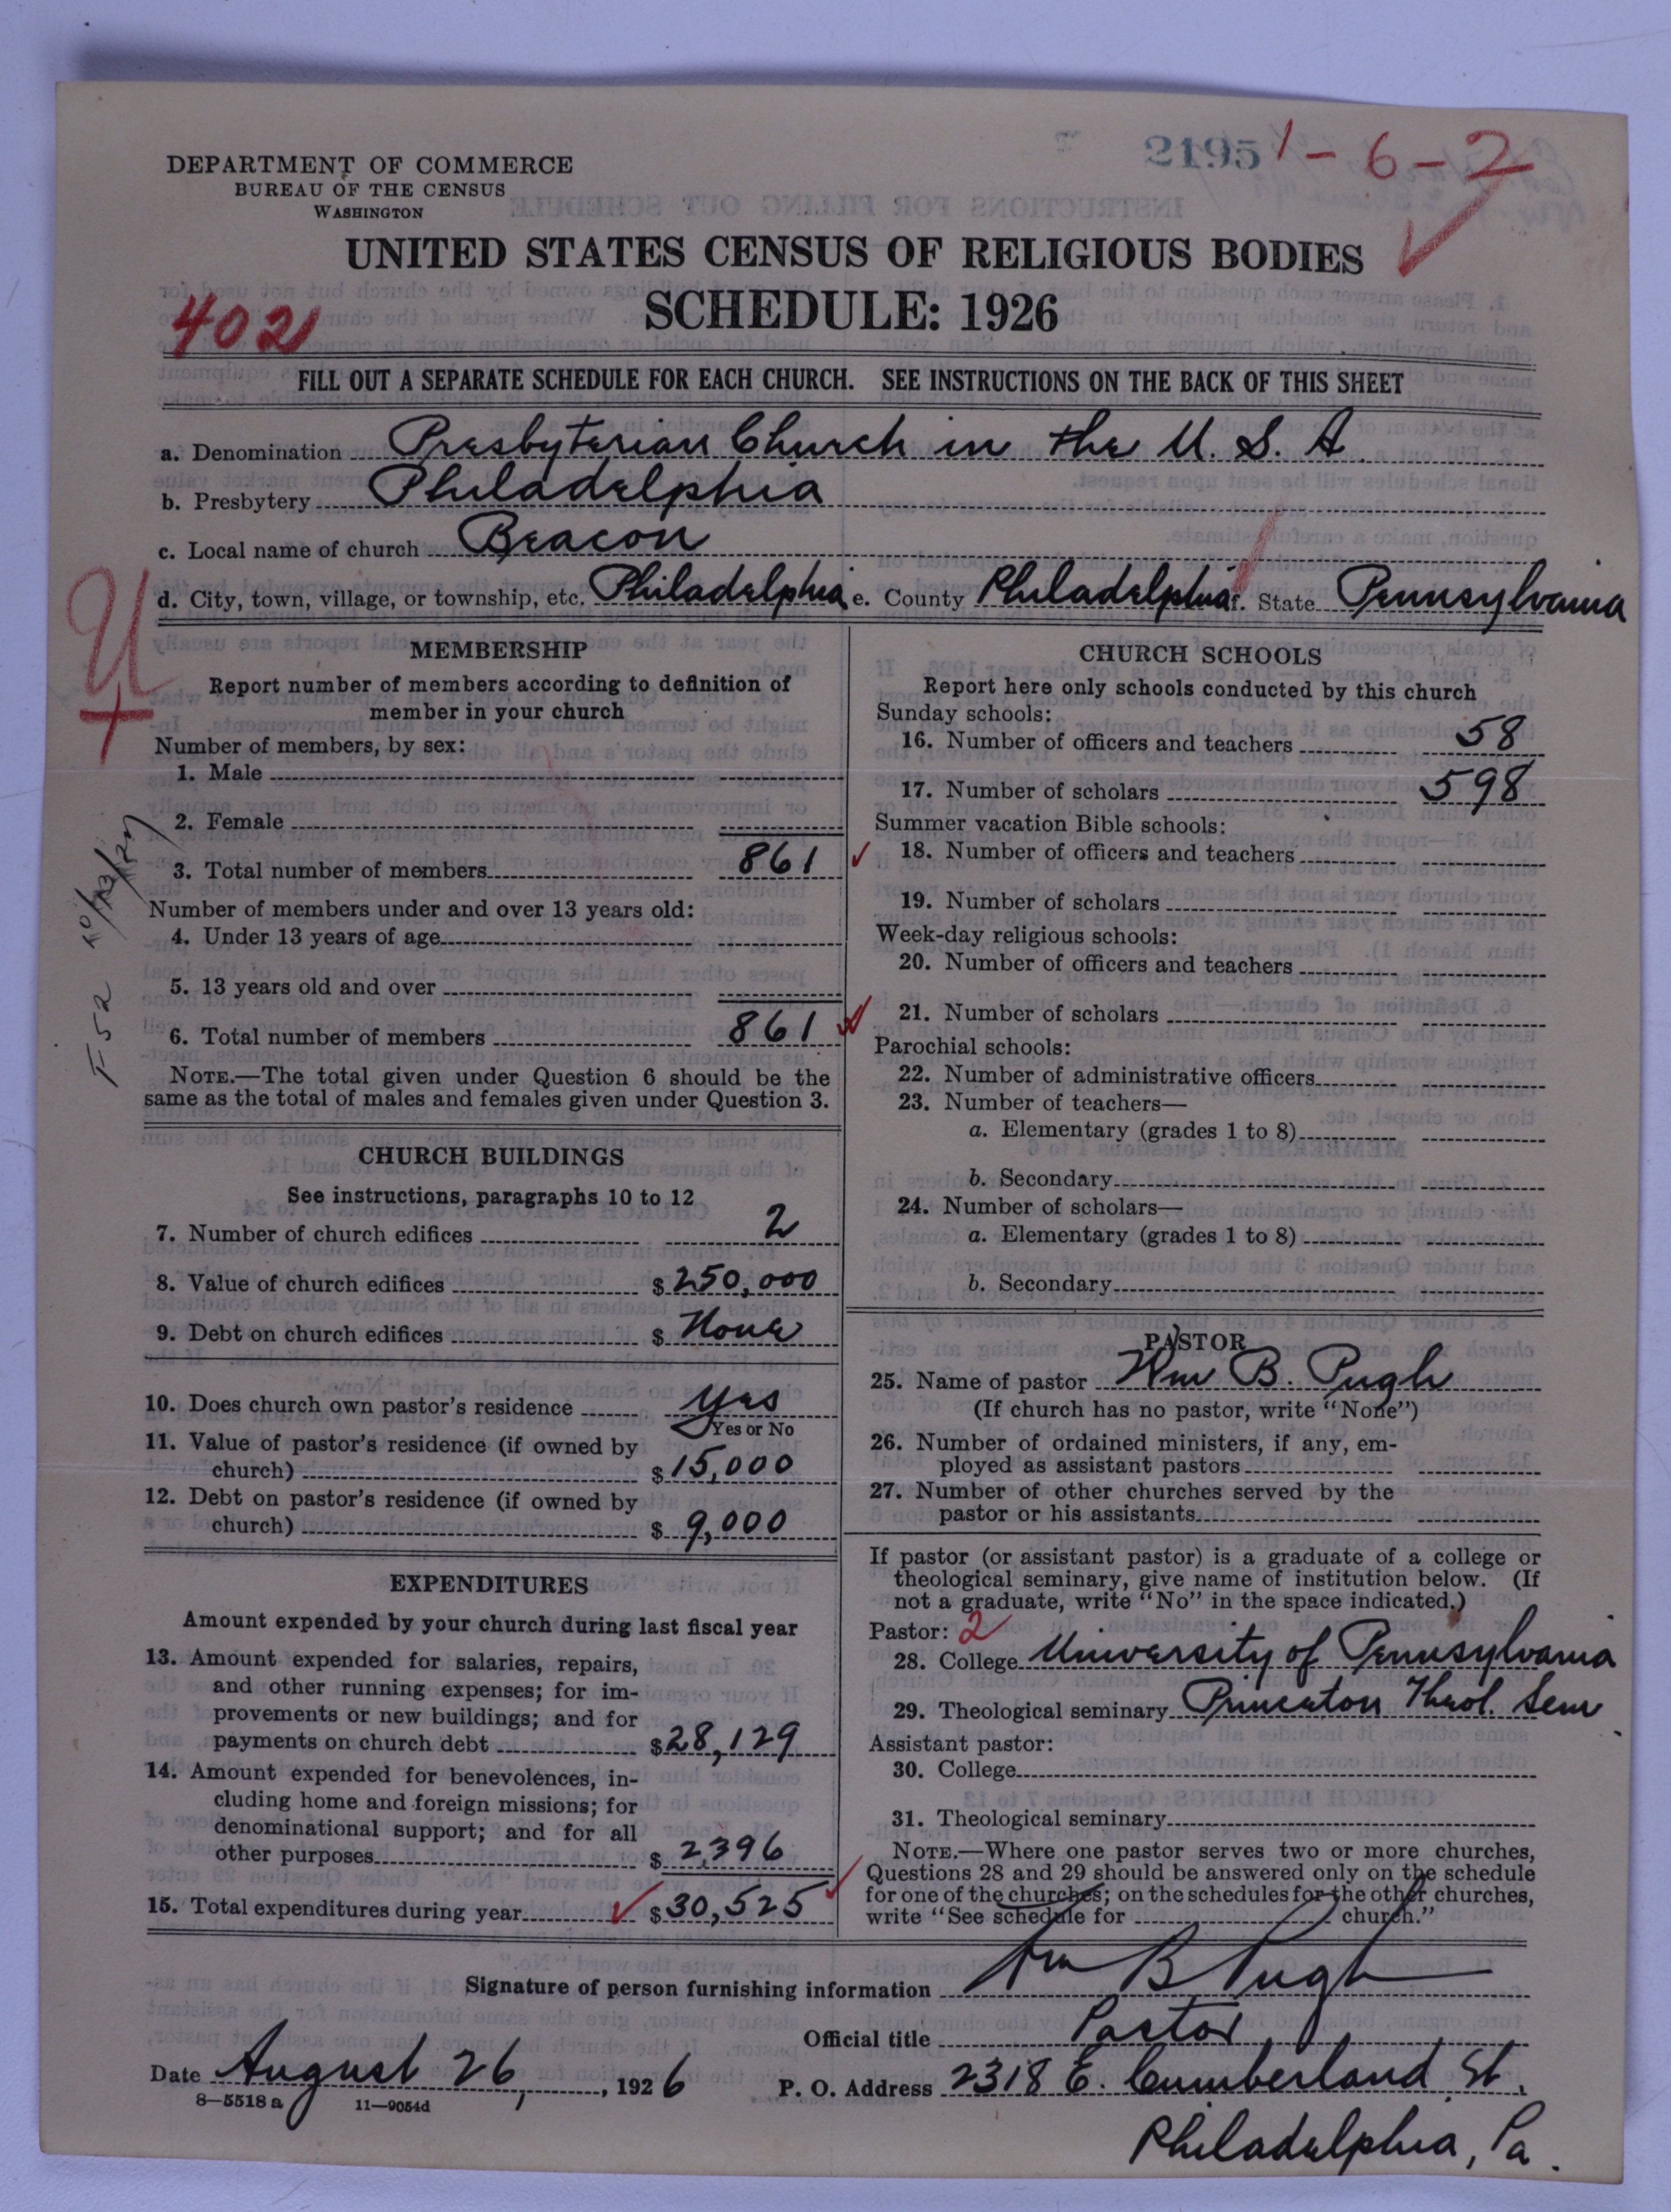 DEPARTMENT OF COMMERCE
BUREAU OF THE CENSUS
WASHINGTON
2195 1-6-2
UNITED STATES CENSUS OF RELIGIOUS BODIES
SCHEDULE: 1926
402
FILL OUT A SEPARATE SCHEDULE FOR EACH CHURCH. SEE INSTRUCTIONS ON THE BACK OF THIS SHEET
a. Denomination Presbyterian Church in the U. S. A
b. Presbytery Philadelphia
c. Local name of church Beacon
d. City, town, village, or township, etc. Philadelphia e. County Philadelphia f. State Pennsylvania
U
+
F52
MEMBERSHIP
Report number of members according to definition of
member in your church
Number of members, by sex:
1. Male
2. Female
3. Total number of members 861
Number of members under and over 13 years old:
4. Under 13 years of age
5. 13 years old and over
6. Total number of members 861
NOTE.—The total given under Question 6 should be the
same as the total of males and females given under Question 3.
CHURCH BUILDINGS
See instructions, paragraphs 10 to 12
7. Number of church edifices 2
8. Value of church edifices $250,000
9. Debt on church edifices $ None
10. Does church own pastor's residence yes
Yes or No
11. Value of pastor's residence (if owned by
church) $15,000
12. Debt on pastor's residence (if owned by
church) $ 9,000
EXPENDITURES
Amount expended by your church during last fiscal year
13. Amount expended for salaries, repairs,
and other running expenses; for im-
provements or new buildings; and for
payments on church debt $28,129
14. Amount expended for benevolences, in-
cluding home and foreign missions; for
denominational support; and for all
other purposes $ 2,396
15. Total expenditures during year $30,525
CHURCH SCHOOLS
Report here only schools conducted by this church
Sunday schools:
16. Number of officers and teachers 58
17. Number of scholars 598
Summer vacation Bible schools:
18. Number of officers and teachers
19. Number of scholars
Week-day religious schools:
20. Number of officers and teachers
21. Number of scholars
Parochial schools:
22. Number of administrative officers
23. Number of teachers—
a. Elementary (grades 1 to 8)
b. Secondary
24. Number of scholars—
a. Elementary (grades 1 to 8)
b. Secondary
PASTOR
25. Name of pastor Wm B. Pugh
(If church has no pastor, write "None")
26. Number of ordained ministers, if any, em-
ployed as assistant pastors
27. Number of other churches served by the
pastor or his assistants
If pastor (or assistant pastor) is a graduate of a college or
theological seminary, give name of institution below. (If
not a graduate, write "No" in the space indicated.)
Pastor: 2
28. College University of Pennsylvania
29. Theological seminary Princeton Theol. Sem
Assistant pastor:
30. College
31. Theological seminary
NOTE.—Where one pastor serves two or more churches,
Questions 28 and 29 should be answered only on the schedule
for one of the churches; on the schedules for the other churches,
write "See schedule for church."
Signature of person furnishing information Wm B Pugh
Official title Pastor
Date August 26, 1926 P. O. Address 2318 E. Cumberland St.,
8—5518a 11—9054d
Philadelphia, Pa.